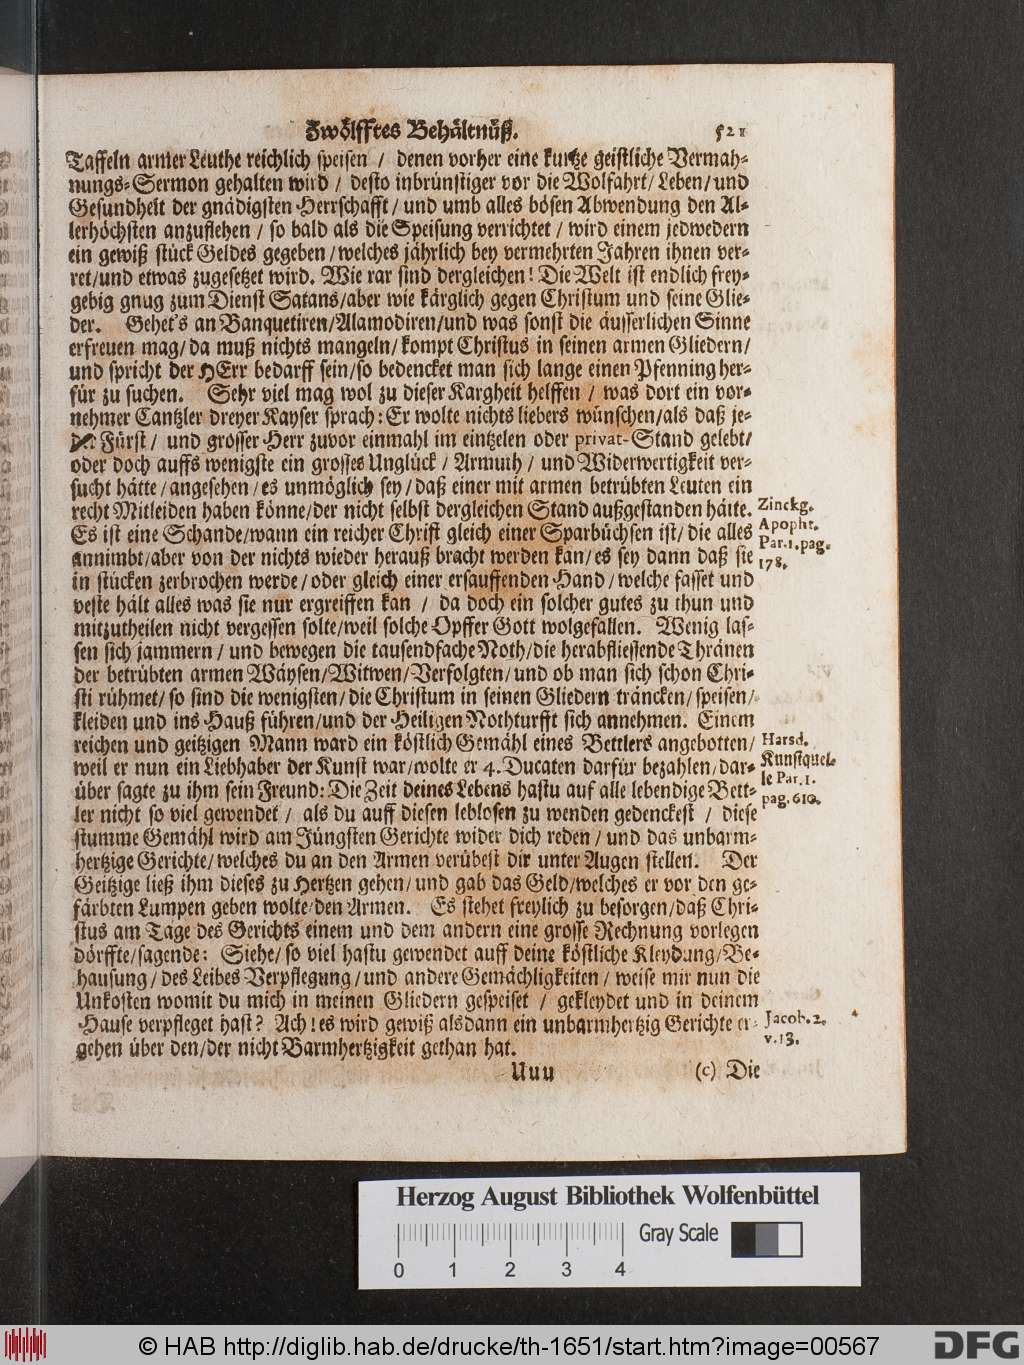 Zwölfftes Behältnüß. 521
Taffeln armer Leuthe reichlich speisen / denen vorher eine kurtze geistliche Vermah-
nungs-Sermon gehalten wird / desto inbrünstiger vor die Wolfahrt/ Leben/und
Gesundheit der gnädigsten Herrschafft / und umb alles bösen Abwendung den Al-
lerhöchsten anzuflehen / so bald als die Speisung verrichtet / wird einem jedwedern
ein gewiß stück Geldes gegeben/welches jährlich bey vermehrten Jahren ihnen ver-
ret/und etwas zugesetzet wird. Wie rar sind dergleichen! Die Welt ist endlich frey-
gebig gnug zum Dienst Satans/aber wie kärglich gegen Christum und seine Glie-
der. Gehet's an Banquetiren/Alamodiren/und was sonst die äusserlichen Sinne
erfreuen mag/da muß nichts mangeln/kompt Christus in seinen armen Gliedern/
und spricht der HErr bedarff sein/so bedencket man sich lange einen Pfenning her-
für zu suchen. Sehr viel mag wol zu dieser Kargheit helffen / was dort ein vor-
nehmer Cantzler dreyer Kayser sprach: Er wolte nichts liebers wünschen/als daß je-
der Fürst / und grosser Herr zuvor einmahl im eintzelen oder privat-Stand gelebt/
oder doch auffs wenigste ein grosses Unglück / Armuth / und Widerwertigkeit ver-
sucht hätte/angesehen/es unmöglich sey/daß einer mit armen betrübten Leuten ein
recht Mitleiden haben könne/der nicht selbst dergleichen Stand außgestanden hätte.
Zinckg.
Apopht.
Par.1.pag.
178.
Es ist eine Schande/wann ein reicher Christ gleich einer Sparbüchsen ist/die alles
annimbt/aber von der nichts wieder herauß bracht werden kan/es sey dann daß sie
in stücken zerbrochen werde/oder gleich einer ersauffenden Hand/welche fasset und
veste hält alles was sie nur ergreiffen kan / da doch ein solcher gutes zu thun und
mitzutheilen nicht vergessen solte/weil solche Opffer Gott wolgefallen. Wenig las-
sen sich jammern / und bewegen die tausendfache Noth/die herabfliessende Thränen
der betrübten armen Wäysen/Witwen/Verfolgten/und ob man sich schon Chri-
sti rühmet/so sind die wenigsten/die Christum in seinen Gliedern träncken/speisen/
kleiden und ins Hauß führen/und der Heiligen Nothturfft sich annehmen. Einem
reichen und geitzigen Mann ward ein köstlich Gemähl eines Bettlers angebotten/
Harsd.
Kunstquel-
le Par. 1.
pag. 610.
weil er nun ein Liebhaber der Kunst war/wolte er 4. Ducaten darfür bezahlen/dar-
über sagte zu ihm sein Freund: Die Zeit deines Lebens hastu auf alle lebendige Bett-
ler nicht so viel gewendet / als du auff diesen leblosen zu wenden gedenckest / diese
stumme Gemähl wird am Jüngsten Gerichte wider dich reden / und das unbarm-
hertzige Gerichte/welches du an den Armen verübest dir unter Augen stellen. Der
Geitzige ließ ihm dieses zu Hertzen gehen/und gab das Geld/welches er vor den ge-
färbten Lumpen geben wolte/den Armen. Es stehet freylich zu besorgen/daß Chri-
stus am Tage des Gerichts einem und dem andern eine grosse Rechnung vorlegen
dörffte/sagende: Siehe/so viel hastu gewendet auff deine köstliche Kleydung/Be-
hausung/des Leibes Verpflegung/und andere Gemächligkeiten/weise mir nun die
Unkosten womit du mich in meinen Gliedern gespeiset / gekleydet und in deinem
Hause verpfleget hast? Ach! es wird gewiß alsdann ein unbarmhertzig Gerichte er-
Jacob. 2.
v.13.
gehen über den/der nicht Barmhertzigkeit gethan hat.
Uuu (c) Die
Herzog August Bibliothek Wolfenbüttel
Gray Scale
0 1 2 3 4
© HAB http://diglib.hab.de/drucke/th-1651/start.htm?image=00567
DFG